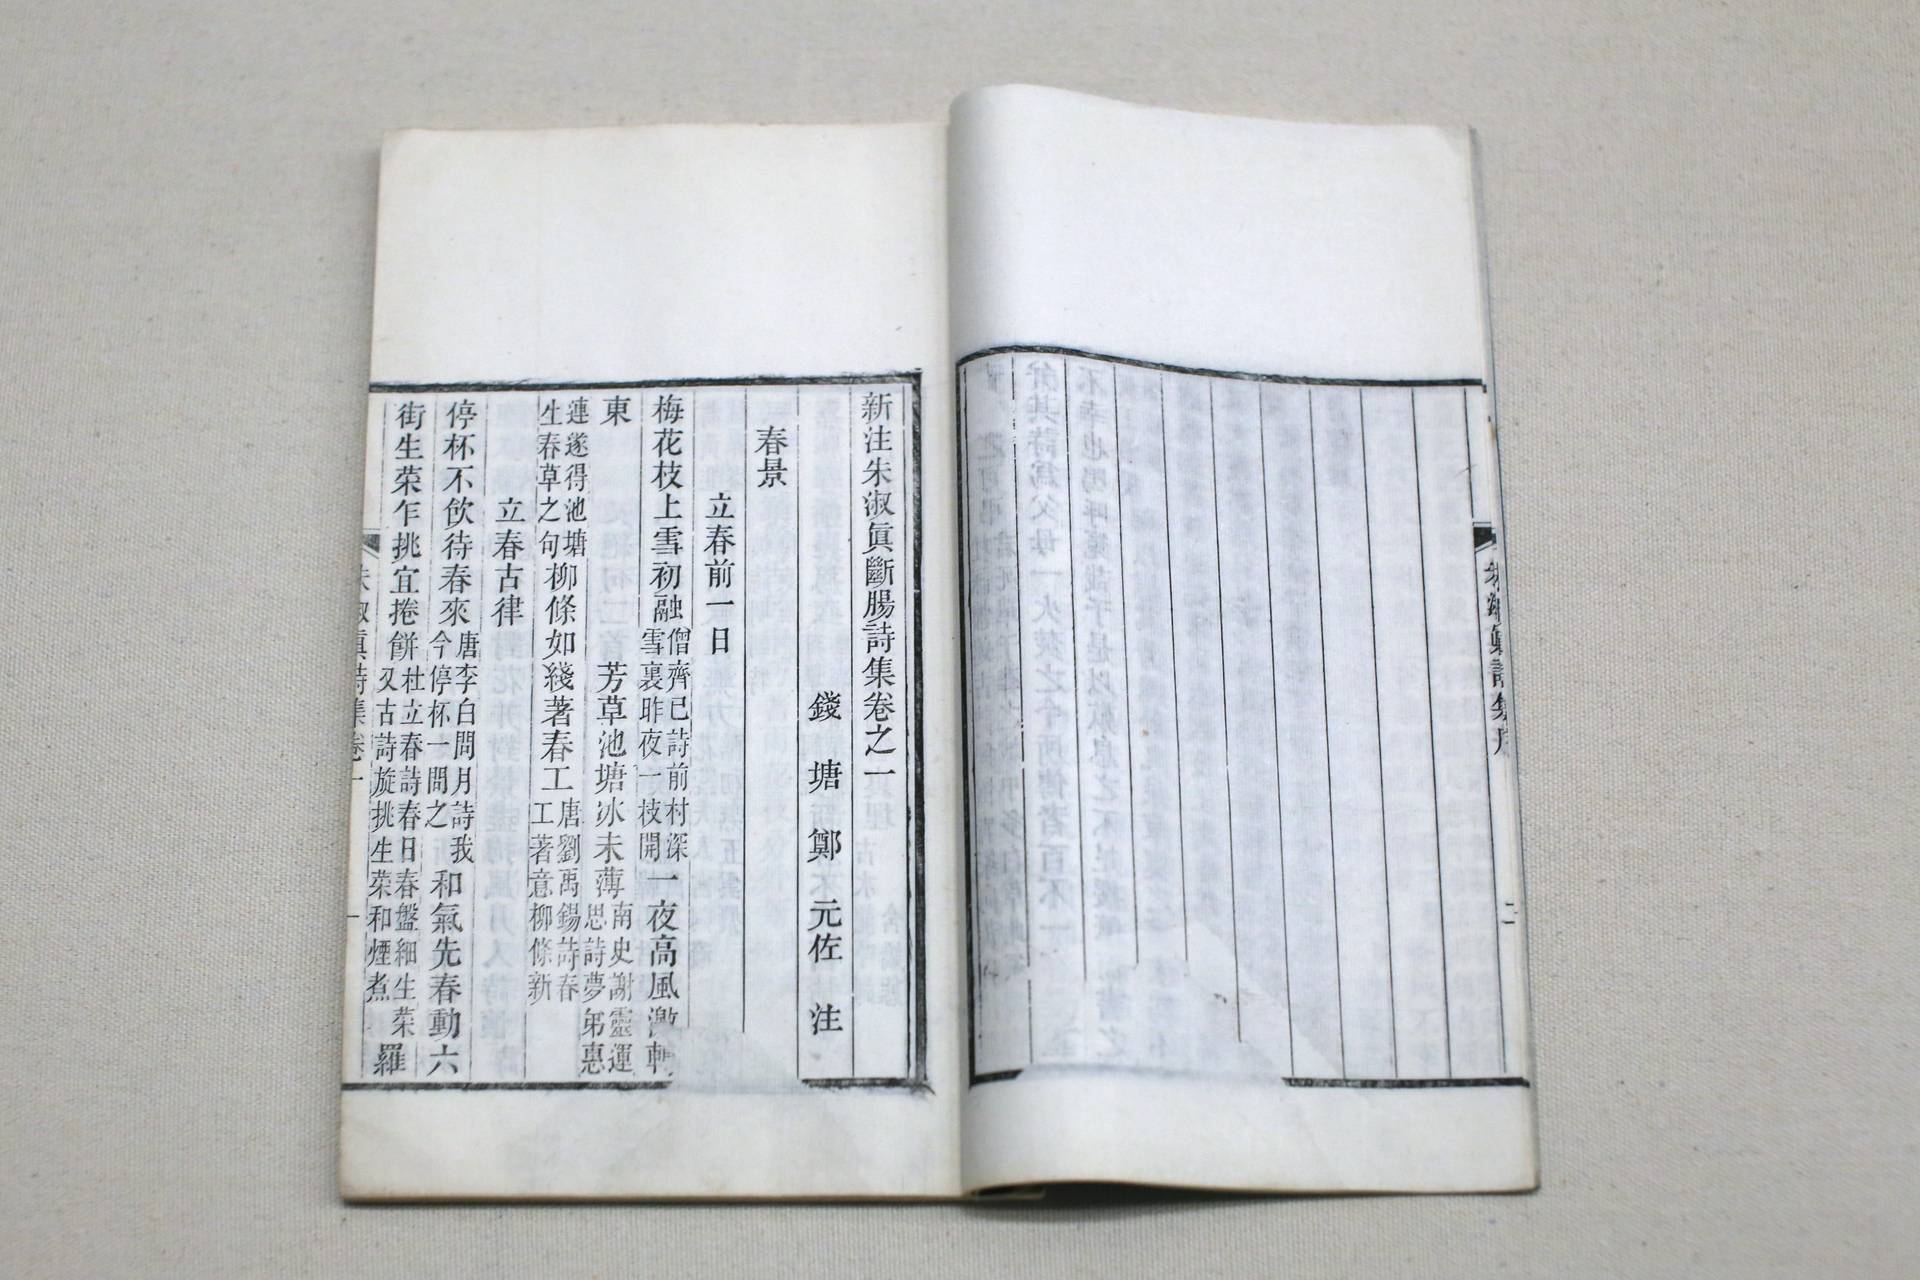 新注朱淑眞斷腸詩集卷之一
錢塘鄭元佐注
春景
立春前一日
梅花枝上雪初融僧齊己詩前村深雪裏昨夜一枝開一夜高風激轉
東芳草池塘冰未薄南史謝靈運思詩夢弟惠
連遂得池塘生春草之句柳條如綫著春工唐劉禹錫詩春工著意柳條新
立春古律
停杯不飲待春來唐李白問月詩我今停杯一問之和氣先春動六
街生菜乍挑宜捲餅杜立春詩春日春盤細生菜又古詩旋挑生菜和煙煮羅
朱淑眞詩集卷一
一